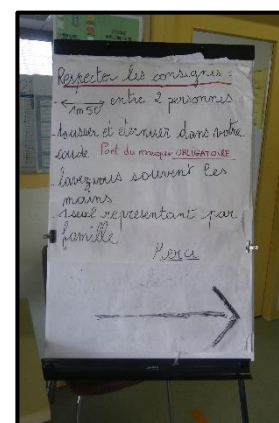 Respecter les consignes :
- ⟷ entre 2 personnes
1m50
- tousser et éternuer dans votre
coude. Port du masque OBLIGATOIRE
- lavez vous souvent les
mains
- 1 seul représentant par
famille
Merci